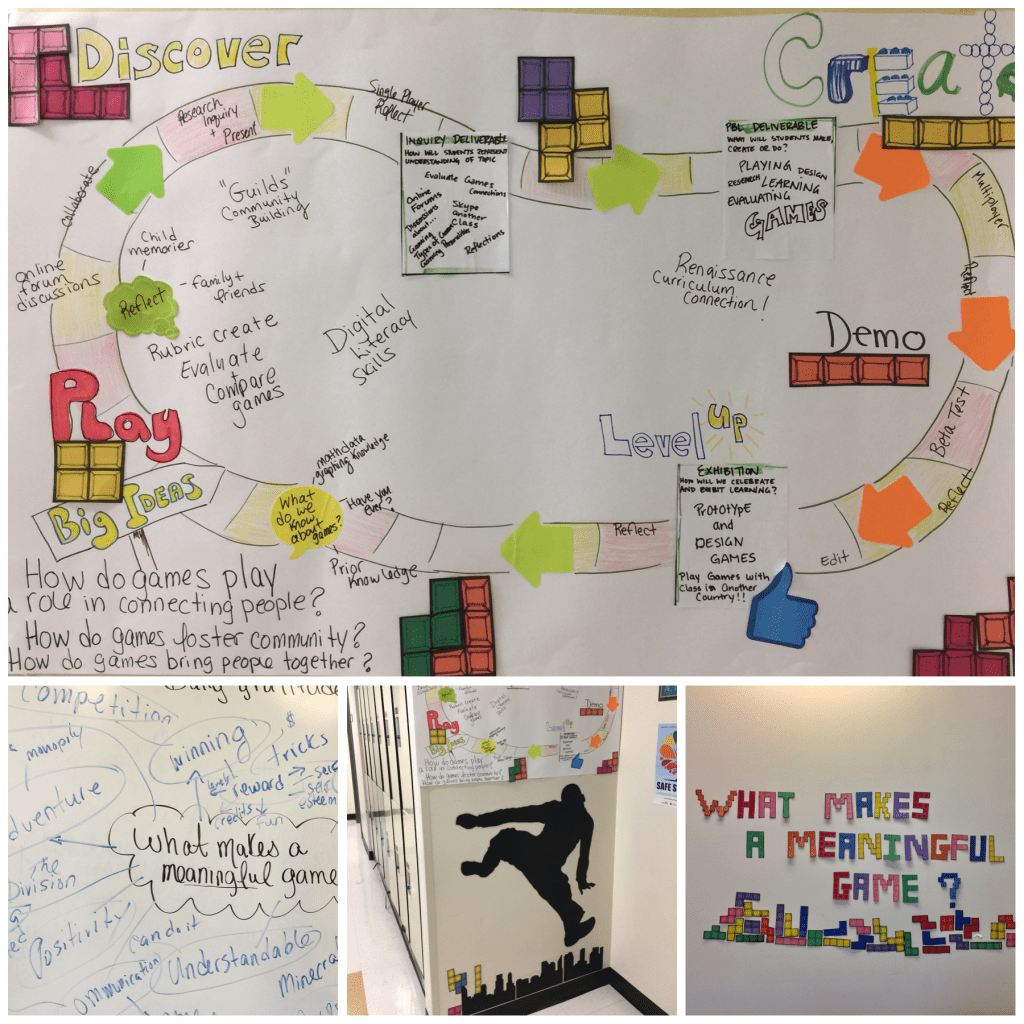 Discover
Create
Research
Inquiry
+
Present
Single Player
Reflect
collaborate
"Guilds"
Community
Building
Child
memories
Online
forum
discussions
Reflect
- Family +
friends
Rubric create
Evaluate
+
Compare
games
Digital
Literacy
Skills
INQUIRY DELIVERABLE
HOW WILL STUDENTS REPRESENT
UNDERSTANDING OF TOPIC
Evaluate Games
Connections
Online
Forums
Discussions
about...
Gaming
Types of Games
Gaming Personalities
Skype
another
Class
Reflections
PBL DELIVERABLE
WHAT WILL STUDENTS MAKE,
CREATE OR DO?
PLAYING DESIGN
RESEARCH LEARNING
EVALUATING
GAMES
Multiplayer
Renaissance
Curriculum
Connection!
Demo
Beta Test
Reflect
Edit
Level up
EXHIBITION
HOW WILL WE CELEBRATE
AND EXIBIT LEARNING?
PROTOTYPE
and
DESIGN
GAMES
Play Games with
Class in Another
Country!!
Reflect
Play
Big IDEAS
math data
graphing knowledge
What
do we
know
about
games?
Have you
ever?
Prior
Knowledge
How do games play
a role in connecting people?
How do games foster community?
How do games bring people together?
Competition
Daily gratitude
monopily
winning
$
tricks
reward
self
esteem
credits
fun
What makes a
meaningful game
the
Division
Positivity
can do it
Understandable
Play
Big IDEAS
Demo
How do games play
a role in connecting people?
How do games foster community?
How do games bring people together?
SAFE
WHAT MAKES
A MEANINGFUL
GAME?